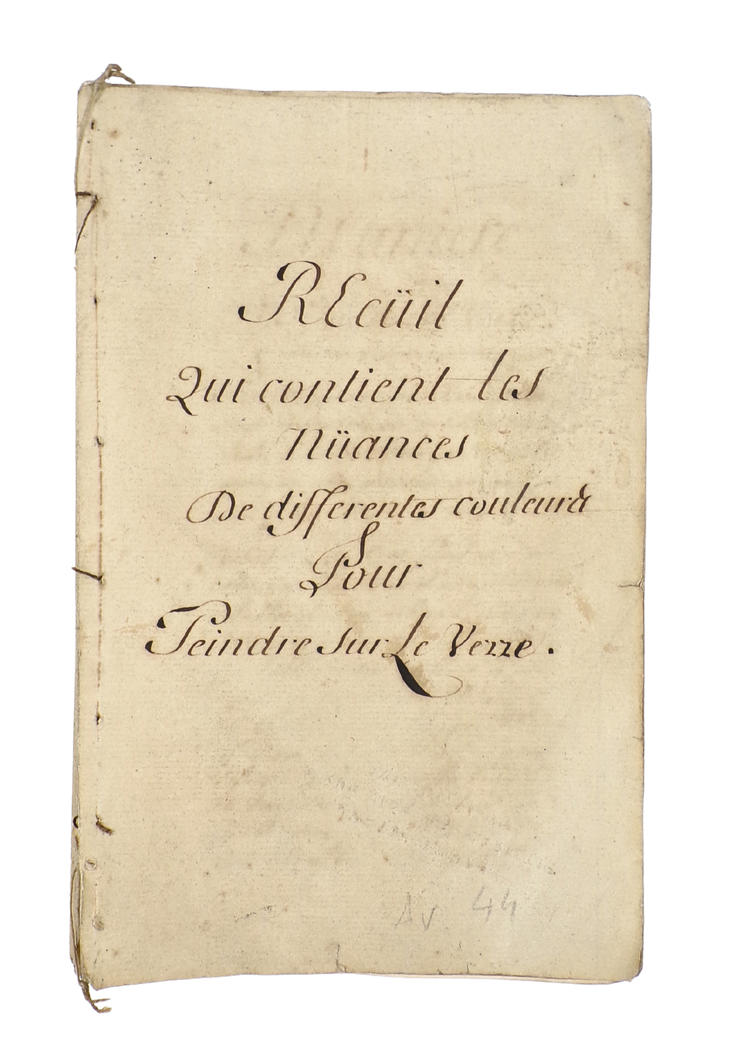 REcüil
Qui contient les
Nüances
De differentes couleurs
Pour
Peindre sur Le Verre.
Av 44